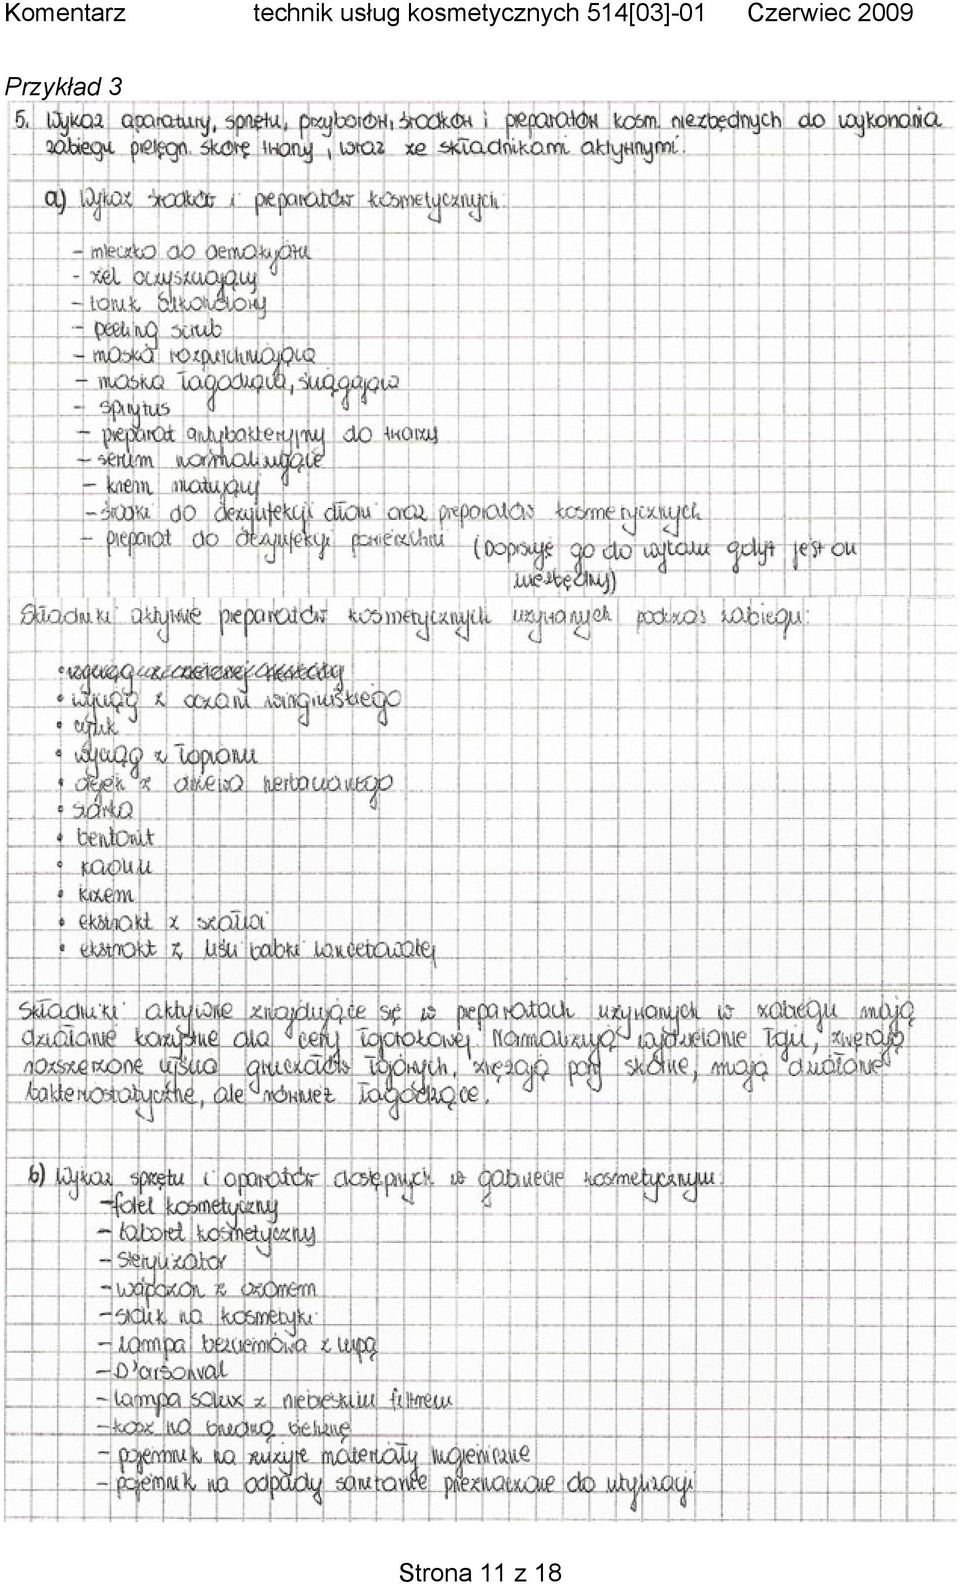 Komentarz technik usług kosmetycznych 514[03]-01 Czerwiec 2009
Przykład 3
5. Wykaz aparatury, sprzętu, przyborów, środków i preparatów kosm. niezbędnych do wykonania
zabiegu pielęgn. skórę twarzy, wraz ze składnikami aktywnymi.
a) Wykaz środków i preparatów kosmetycznych:
- mleczko do demakijażu
- żel oczyszczający
- tonik alkoholowy
- peeling scrub
- maska rozpulchniająca
- maska łagodząca, ściągająca
- spirytus
- preparat antybakteryjny do twarzy
- serum normalizujące
- krem matujący
- środki do dezynfekcji dłoni oraz preparatów kosmetycznych
- preparat do dezynfekcji powierzchni (Dopisuję go do wykazu gdyż jest on
niezbędny)
Składniki aktywne preparatów kosmetycznych używanych podczas zabiegu:
• wyciąg z oczaru wirginijskiego
• cynk
• wyciąg z łopianu
• olejek z drzewa herbacianego
• siarka
• bentonit
• kaolin
• krzem
• ekstrakt z szałwi
• ekstrakt z liści babki lancetowatej
Składniki aktywne znajdujące się w preparatach używanych w zabiegu mają
działanie korzystne dla cery łojotokowej. Normalizują wydzielanie łoju, zwierają
rozszerzone ujścia gruczołów łojowych, zwężają pory skórne, mają działanie
bakteriostatyczne, ale również łagodzące.
b) Wykaz sprzętu i aparatów dostępnych w gabinecie kosmetycznym:
- fotel kosmetyczny
- taboret kosmetyczny
- Sterylizator
- wapozon z ozonem
- stolik na kosmetyki
- lampa bezcieniowa z lupą
- D'arsonval
- lampa solux z niebieskim filtrem
- kosz na brudną bieliznę
- pojemnik na zużyte materiały higieniczne
- pojemnik na odpady sanitarne przeznaczone do utylizacji
Strona 11 z 18